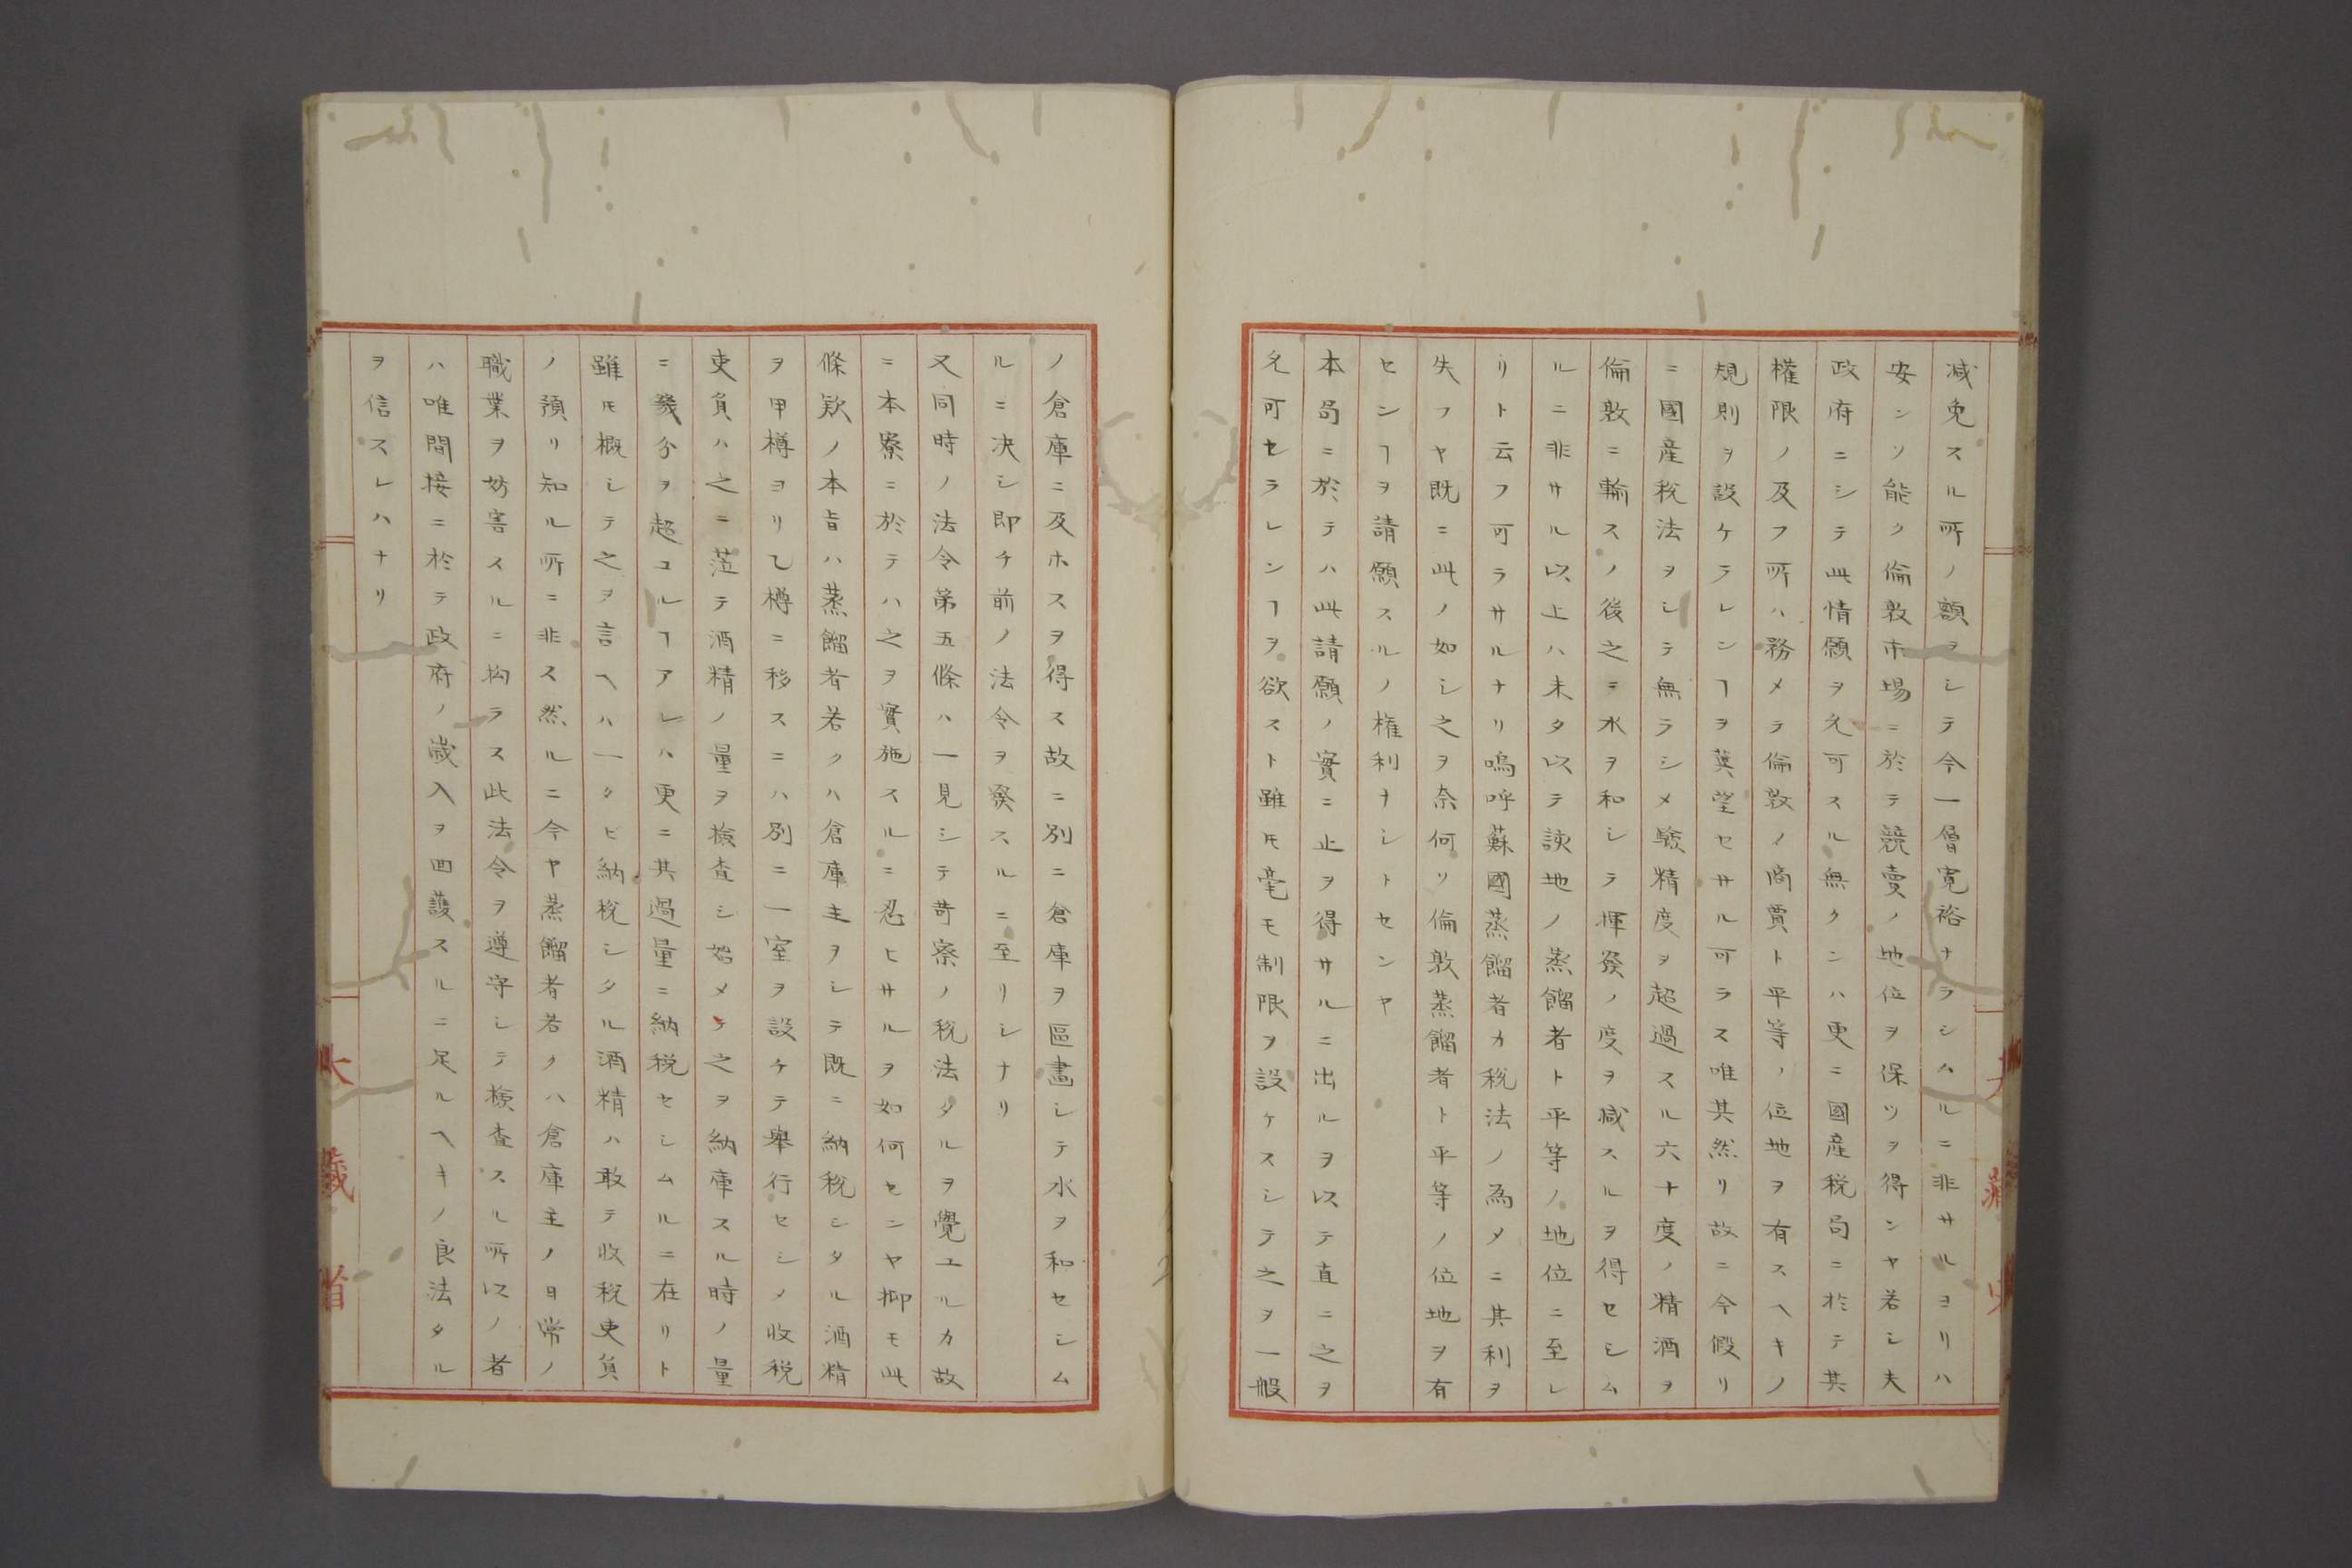 減免スル所ノ額ヲシテ今一層寛裕ナラシムルニ非サルヨリハ
安ンソ能ク倫敦市場ニ於テ競賣ノ地位ヲ保ツヲ得ンヤ若シ夫
政府ニシテ此情願ヲ允可スル無クンハ更ニ國産税局ニ於テ其
權限ノ及フ所ハ務メテ倫敦ノ商賈ト平等ノ位地ヲ有スヘキノ
規則ヲ設ケラレンヿヲ冀望セサル可ラス唯其然リ故ニ今假リ
ニ國産税法ヲシテ無ラシメ驗精度ヲ超過スル六十度ノ精酒ヲ
倫敦ニ輸スノ後之ニ水ヲ和シテ揮發ノ度ヲ減スルヲ得セシム
ルニ非サル以上ハ未タ以テ該地ノ蒸餾者ト平等ノ地位ニ至レ
リト云フ可ラサルナリ嗚呼蘇國蒸餾者カ税法ノ為メニ其利ヲ
失フヤ既ニ此ノ如シ之ヲ奈何ソ倫敦蒸餾者ト平等ノ位地ヲ有
センヿヲ請願スルノ権利ナシトセンヤ
本局ニ於テハ此請願ノ實ニ止ヲ得サルニ出ルヲ以テ直ニ之ヲ
允可セラレンヿヲ欲スト雖モ毫モ制限ヲ設ケスシテ之ヲ一般
ノ倉庫ニ及ホスヲ得ス故ニ別ニ倉庫ヲ區畫シテ水ヲ和セシム
ルニ决シ即チ前ノ法令ヲ發スルニ至リシナリ
又同時ノ法令第五條ハ一見シテ苛察ノ税法タルヲ覺ユルカ故
ニ本寮ニ於テハ之ヲ實施スルニ忍ヒサルヲ如何センヤ抑モ此
條欵ノ本旨ハ蒸餾者若クハ倉庫主ヲシテ既ニ納税シタル酒精
ヲ甲樽ヨリ乙樽ニ移スニハ別ニ一室ヲ設ケテ舉行セシメ收税
吏員ハ之ニ莅テ酒精ノ量ヲ檢査シ始メテ之ヲ納庫スル時ノ量
ニ幾分ヲ超ユルヿアレハ更ニ其過量ニ納税セシムルニ在リト
雖モ概シテ之ヲ言ヘハ一タビ納税シタル酒精ハ敢テ收税吏員
ノ預リ知ル所ニ非ス然ルニ今ヤ蒸餾者若クハ倉庫主ノ日常ノ
職業ヲ妨害スルニ拘ラス此法令ヲ遵守シテ檢査スル所以ノ者
ハ唯間接ニ於テ政府ノ歳入ヲ回護スルニ足ルヘキノ良法タル
ヲ信スレハナリ
大藏省